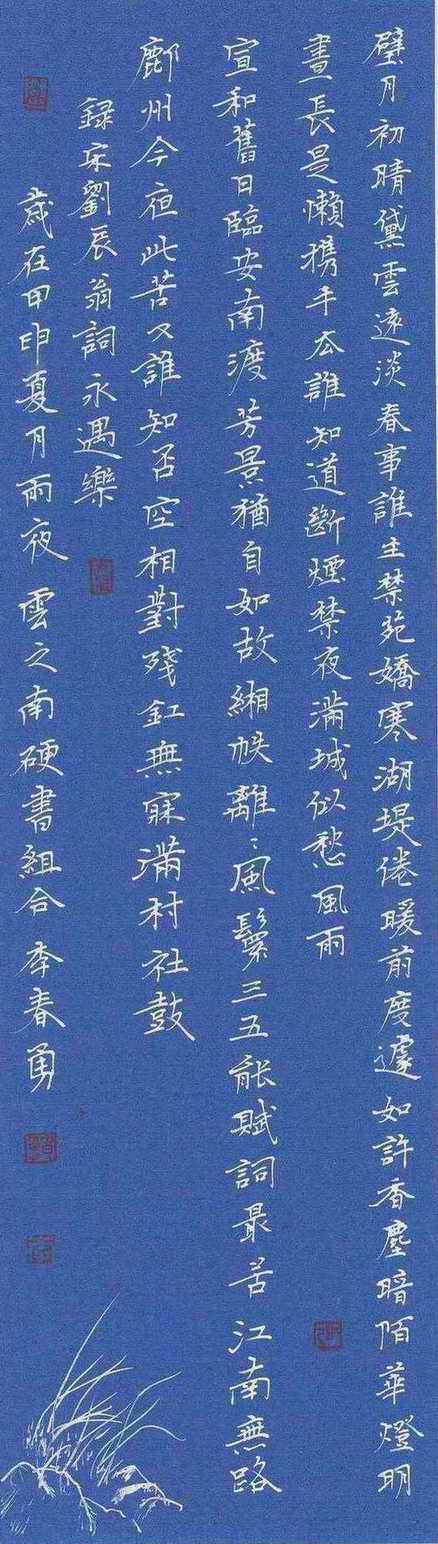 璧月初晴黛雲遠淡春事誰主禁苑嬌寒湖堤倦暖前度遽如許香塵暗陌華燈明
晝長是懶携手去誰知道斷煙禁夜滿城似愁風雨
宣和舊日臨安南渡芳景猶自如故緗帙離〻風鬟三五能賦詞最苦江南無路
鄜州今夜此苦又誰知否空相對殘釭無寐滿村社鼓
録宋劉辰翁詞永遇樂
歲在甲申夏月雨夜 雲之南硬書組合 李春勇